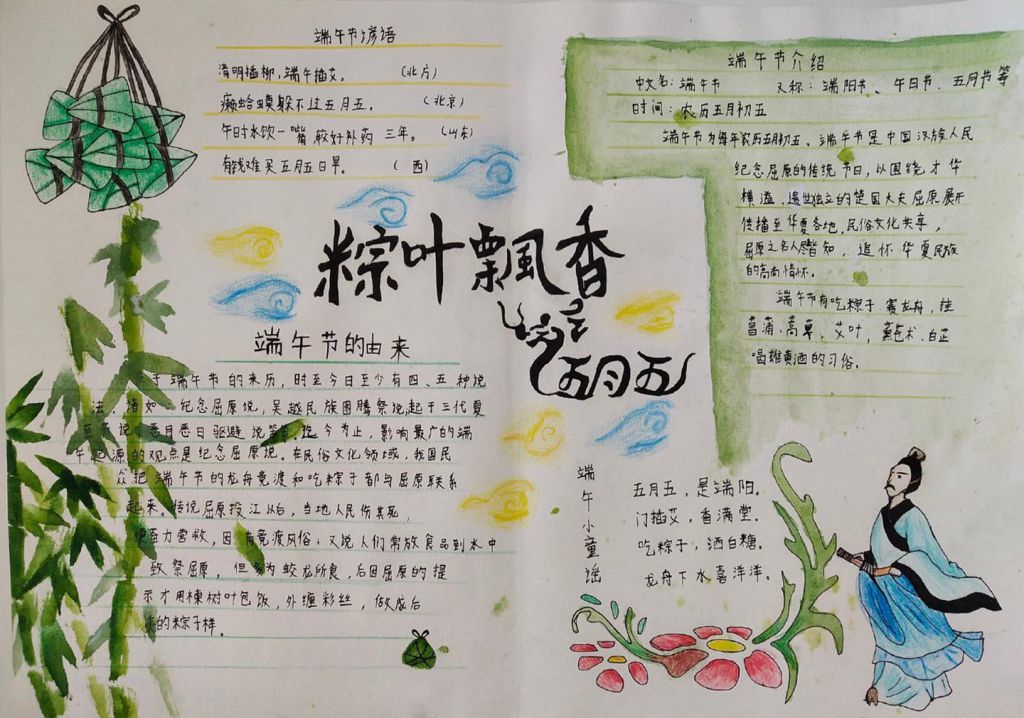 端午节谚语
清明插柳，端午插艾。 （北方）
癞蛤蟆躲不过五月五。 （北京）
午时水饮一嘴 较好补药 三年。 （山东）
有钱难买五月五日旱。 （西）
粽叶飘香
五月五
端午节的由来
于端午节的来历，时至今日至少有四、五种说
法，诸如：纪念屈原说，吴越民族图腾祭说，起于三代夏
至 说，恶月恶日驱避说等，迄今为止，影响最广的端
午起源的观点是纪念屈原说。在民俗文化领域，我国民
众把端午节的龙舟竞渡和吃粽子都与屈原联系
起来。传说屈原投江以后，当地人民伤其死，
便奋力营救，因有竞渡风俗；又说人们常放食品到水中
致祭屈原，但多为蛟龙所食，后因屈原的提
示才用楝树叶包饭，外缠彩丝，做成后
来的粽子样。
端午节介绍
中文名：端午节 又称：端阳节、午日节、五月节等
时间：农历五月初五
端午节为每年农历五月初五、端午节是中国汉族人民
纪念屈原的传统节日，以围绕才华
横溢、遗世独立的楚国大夫屈原展开
传播至华夏各地，民俗文化共享，
屈原之名人尽皆知，追怀华夏民族
的高尚情怀。
端午节有吃粽子 赛龙舟，挂
菖蒲、蒿草、艾叶，薰苍术、白芷
喝雄黄酒的习俗。
端午小童谣
五月五，是端阳。
门插艾，香满堂。
吃粽子，洒白糖。
龙舟下水喜洋洋。